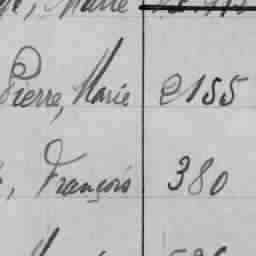 Marie
Pierre, Marie 2155
, François 380